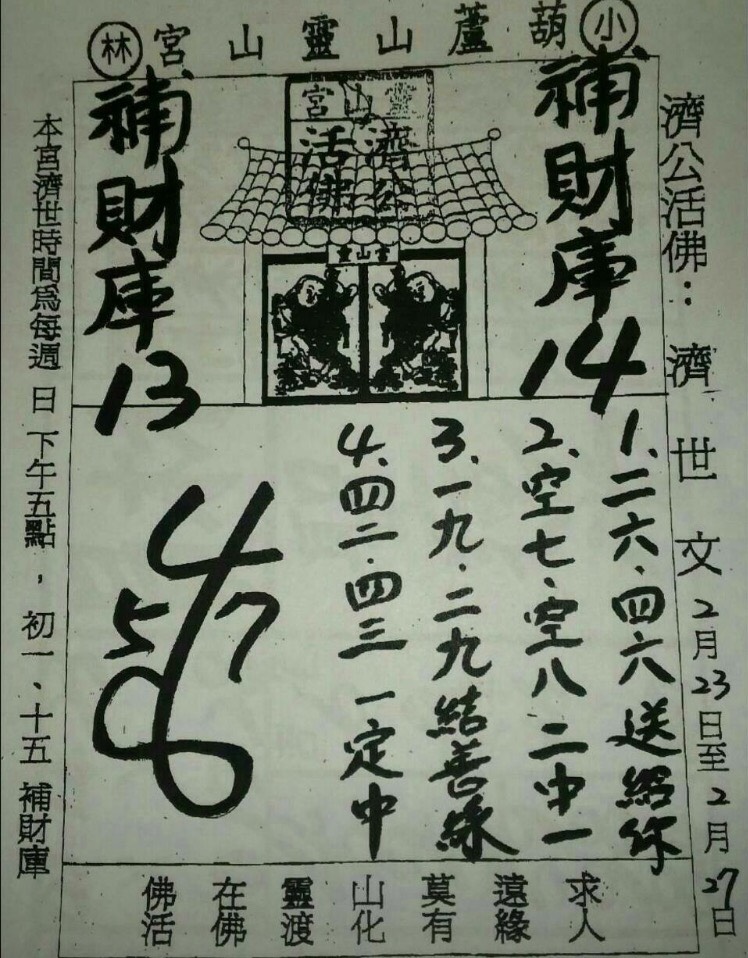 小葫蘆山靈山宮林
濟公活佛：濟世文2月23日至2月27日
靈山宮
濟公
活佛
靈山宮
補財庫14
補財庫13
1、二六、四六送給你
2、空七、空八二中一
3、一九、二九結善緣
4、四二、四三一定中
4
5 7
佛在靈山莫遠求
活佛渡化有緣人
本宮濟世時間為每週日下午五點，初一、十五補財庫